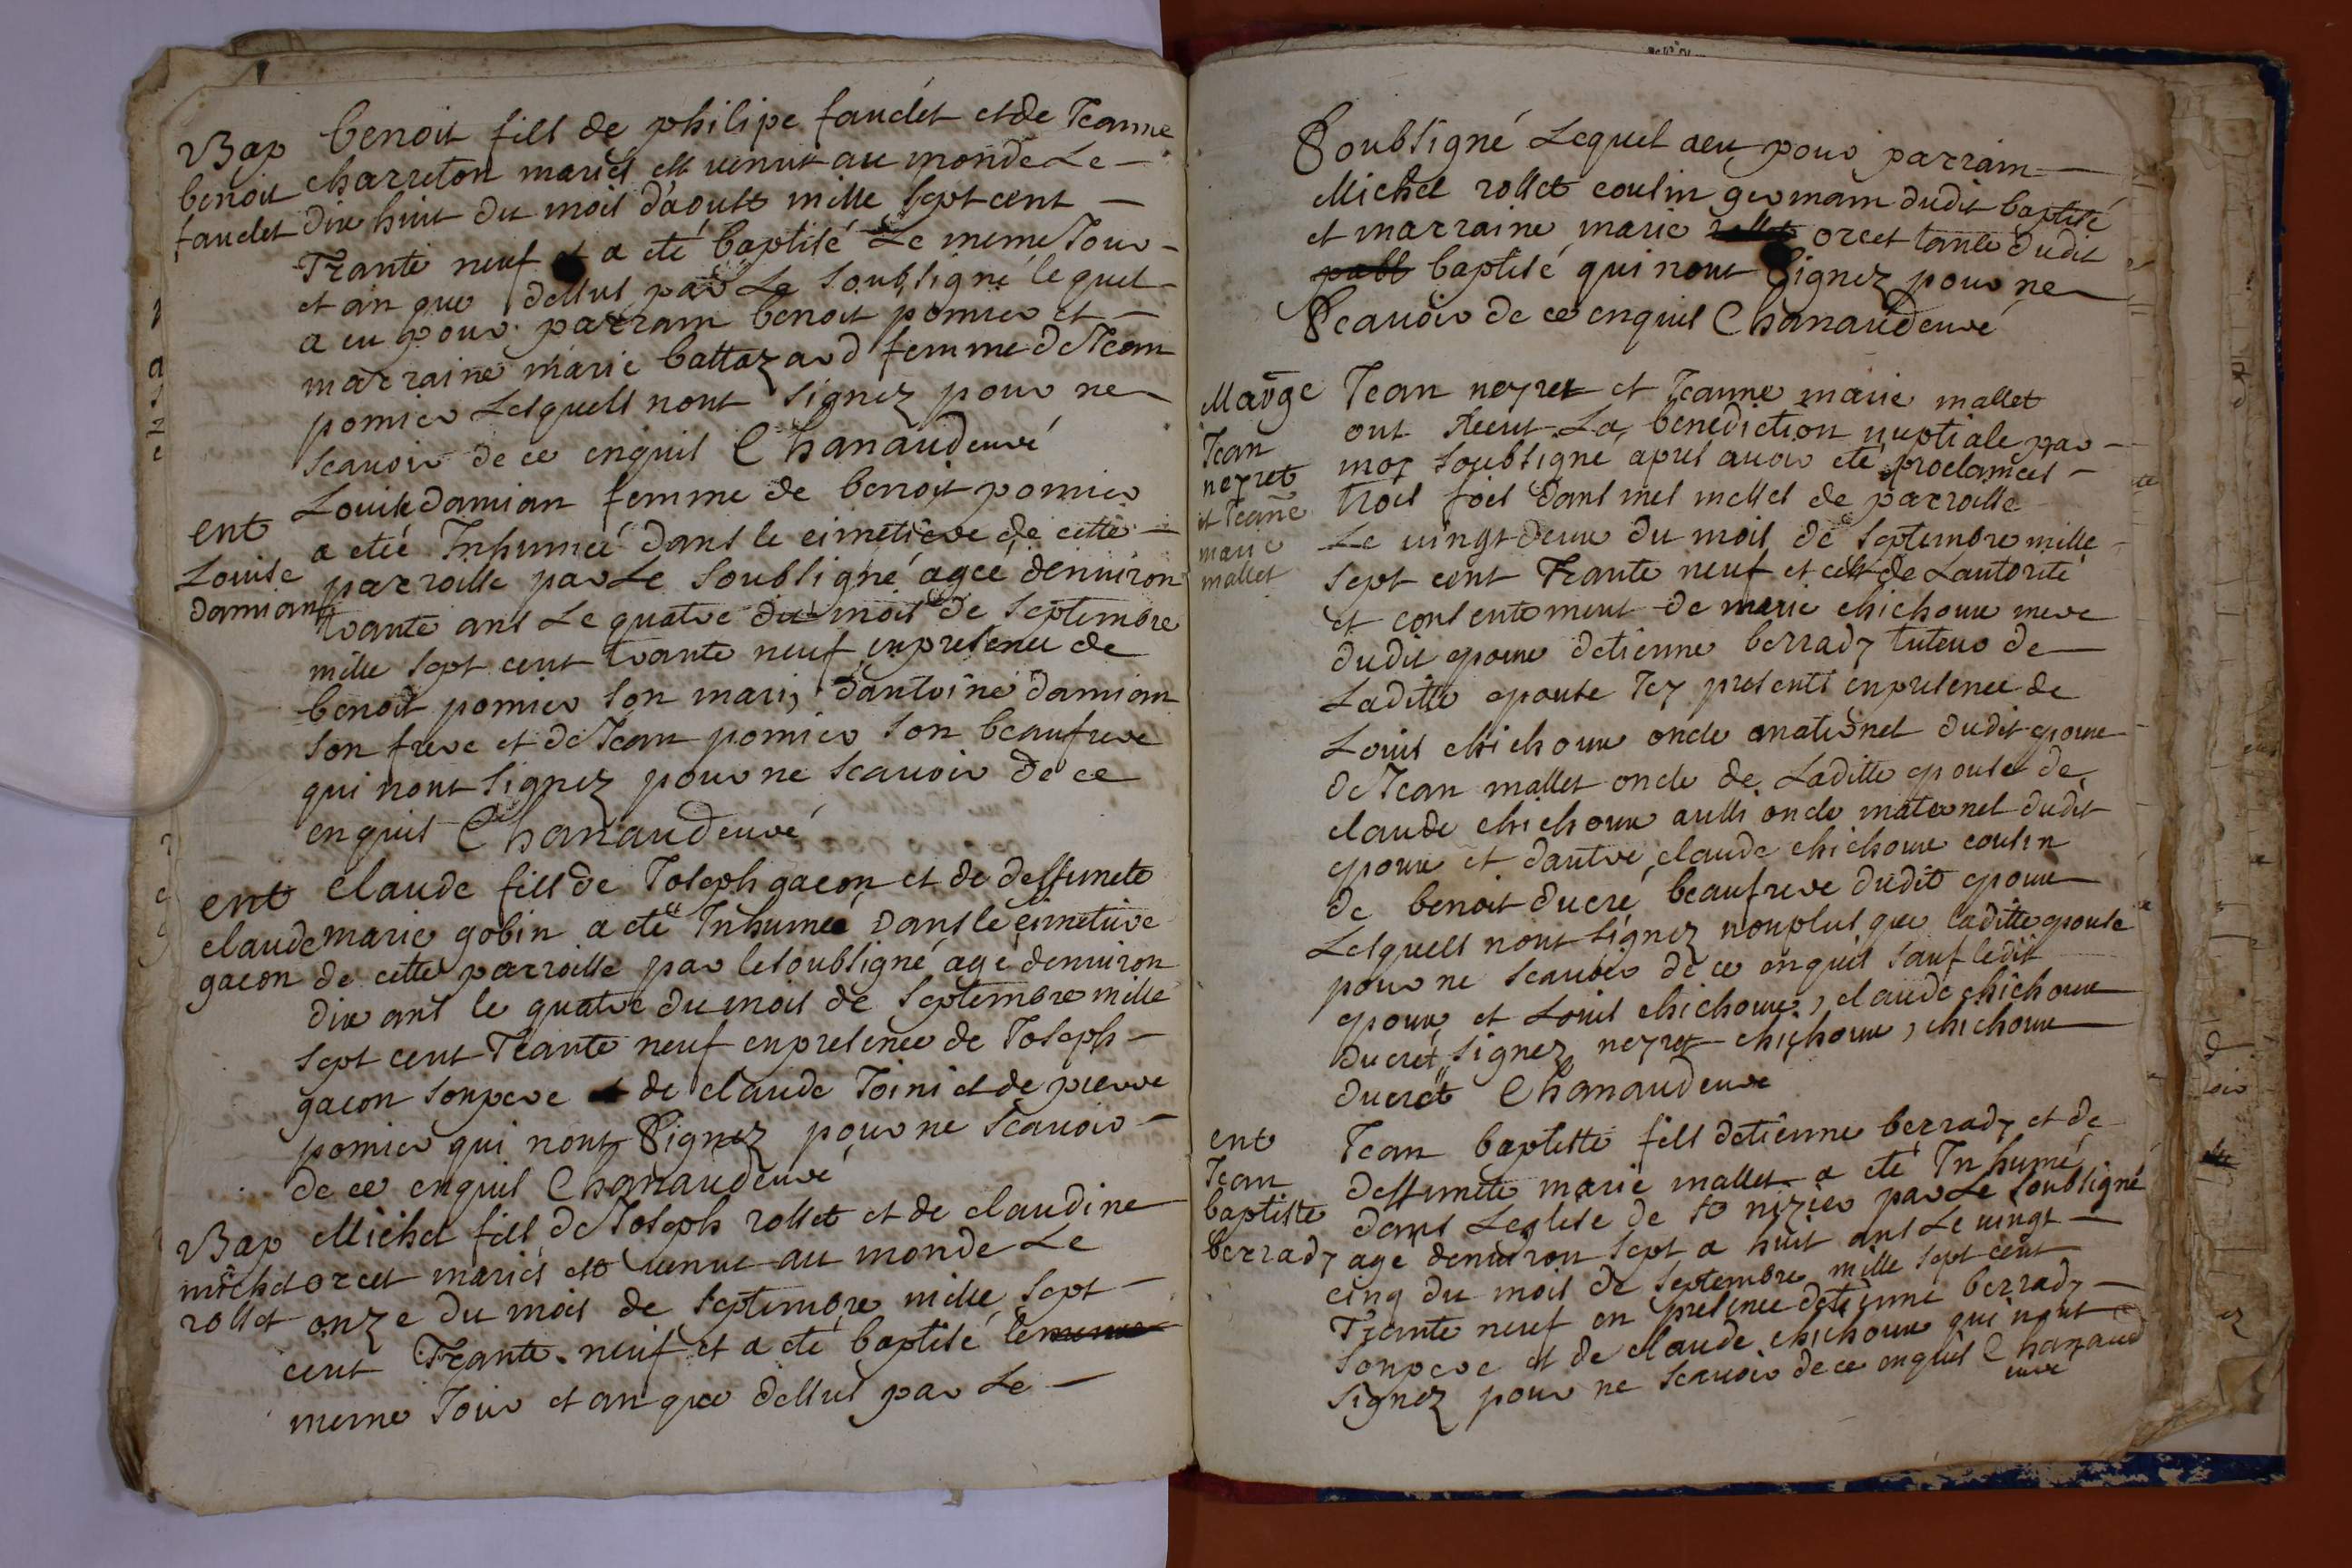 Bap
benoit
faudet
benoit fils de philipe faudet et de Jeanne
charreton mariés est venut au monde Le
dix huit du mois d'aoust mille sept cent
Trante neuf a eté baptisé Le meme Jour
et an que dessus par Le soubsigné lequel
a eu pour parrain benoit pomier et
marraine marie battazard femme de Jean
pomier Lesquels nont signez pour ne
scavoir de ce enquis Chanaud curé
ent
Louise
damian
Louise damian femme de benoit pomier
a etée Inhumée dans le cimetiere de cette
parroisse par Le soubsigné agée denviron
trante ans Le quatre du mois de septembre
mille sept cent trante neuf en presence de
benoit pomier son mari, dantoine damian
son frere et de Jean pomier son beaufrere
qui nont signez pour ne scavoir de ce
enquis Chanaud curé
ent
claude
gacon
claude fils de Joseph gacon et de deffuncte
marie gobin a eté Inhumé dans le cimetiere
de cette parroisse par le soubsigné agé denviron
dix ans le quatre du mois de septembre mille
sept cent Trante neuf en presence de Joseph
gacon son pere de claude Joini et de pierre
pomier qui nont signez pour ne scavoir
de ce enquis Chanaud curé
Bap
michel
rollet
Michel fils de Joseph rollet et de claudine
orcet mariés est venut au monde Le
onze du mois de septembre mille sept
cent Trante neuf et a eté baptisé le meme
meme Jour et an que dessus par Le
Soubsigné Lequel a eu pour parrain
Michel rollet cousin germain dudit baptisé
et marraine marie rollet orcet tante dudit
baptisé qui nont signez pour ne
scavoir de ce enquis Chanaud curé
Marge
Jean
neyret
et Jeane
marie
mallet
Jean neyret et Jeanne marie mallet
ont Receut La benediction nuptiale par
moy soubsigné apres avoir eté proclamés
trois fois dans mes messes de parroisse
Le vingt deux du mois de septembre mille
sept cent Trante neuf et cest de Lautorité
et consentement de marie chichoux mere
dudit epoux detienne berrady tuteur de
Laditte epouse Jcy presents en presence de
Louis chichoux oncle maternel dudit epoux
de Jean mallet oncle de Laditte epouse de
claude chichoux aussi oncle maternel dudit
epoux et dautre claude chichoux cousin
de benoit ducré beaufrere dudit epoux
Lesquels nont signez nonplus que laditte epouse
pour ne scavoir de ce enquis sauf ledit
epoux et Louis chichoux, claude chichoux
ducret signez neyret chichoux, chichoux
ducret Chanaud curé
ent
Jean
baptiste
berrady
Jean baptiste fils detienne berrady et de
deffuncte marie mallet a eté Inhumé
dans Leglise de st nizier par Le soubsigné
agé denviron sept a huit ans Le vingt
cinq du mois de septembre mille sept cent
Trante neuf en presence detienne berrady
son pere et de claude chichoux qui nont
signez pour ne scavoir de ce enquis Chanaud
curé